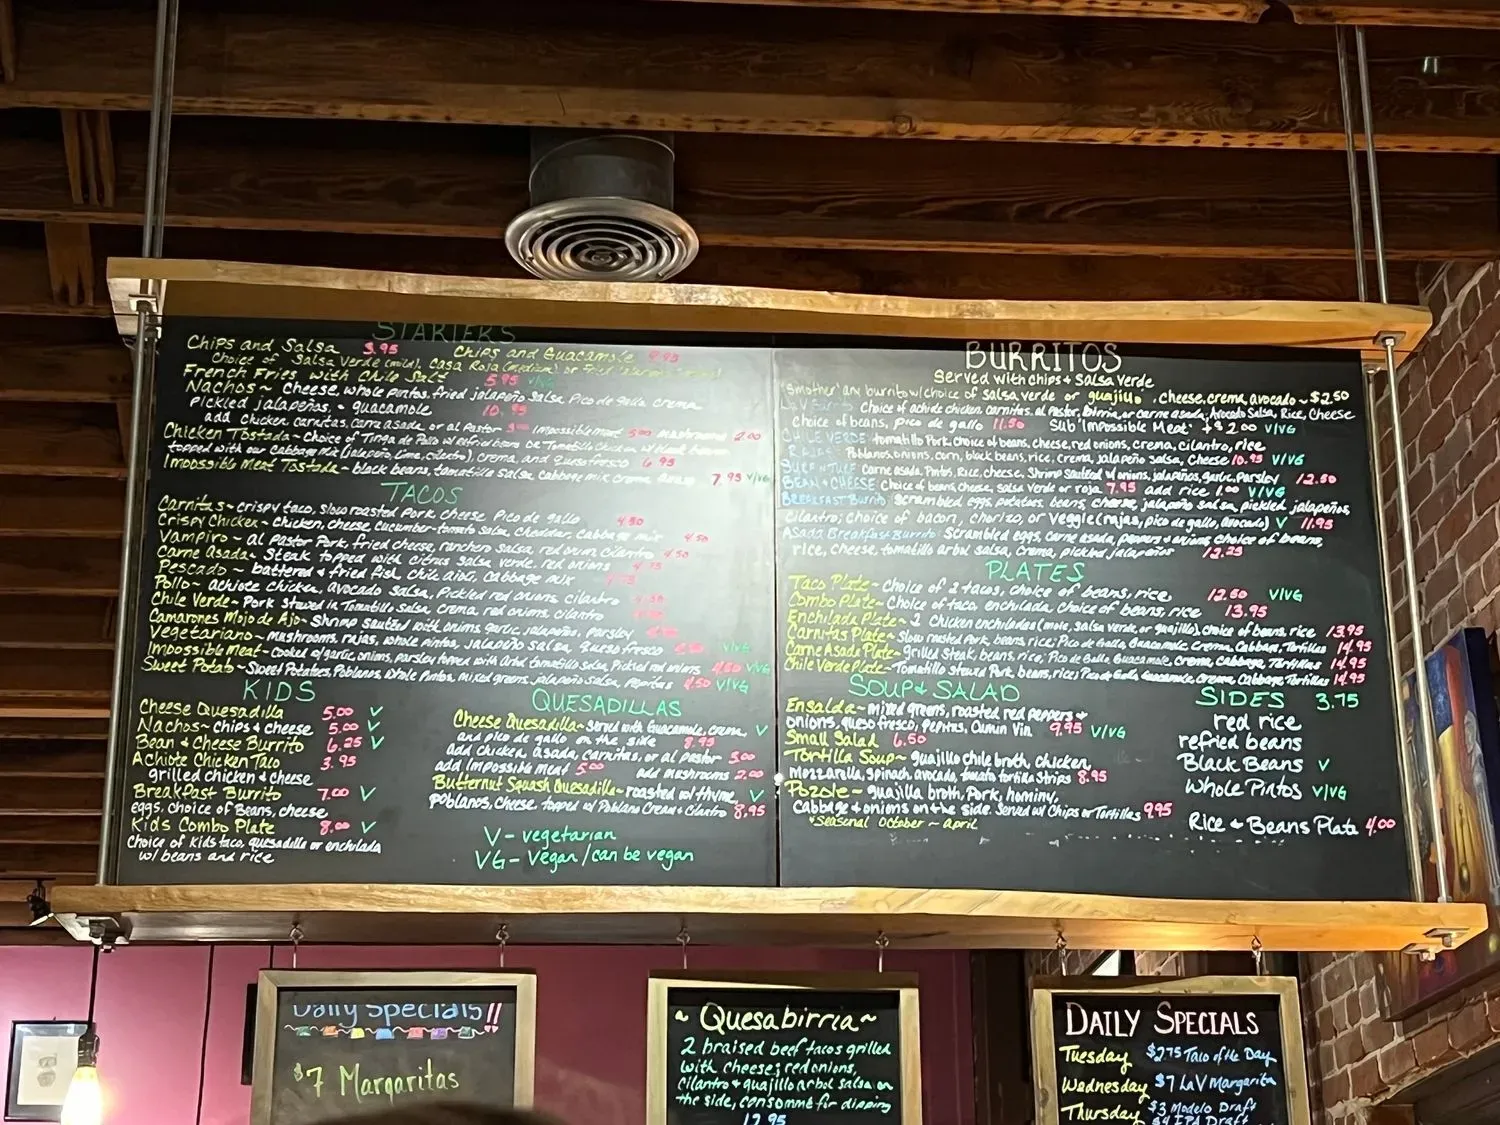 STARTERS
Chips and Salsa 3.95 Chips and Guacamole 9.95
Choice of Salsa Verde (mild), Casa Roja (medium) or Fried
French Fries with Chile Salt 5.95 V/VG
Nachos~ cheese, whole pintos, fried jalapeño salsa, Pico de gallo, crema
pickled jalapeños, + guacamole 10.95
add chicken, carnitas, carne asada, or al Pastor 3.00 Impossible meat 5.00 mushrooms 2.00
Chicken Tostada~ choice of Tinga de Pollo w/ refried beans OR Tomatillo Chicken w/ black beans
topped with our Cabbage mix (jalapeño, lime, cilantro), crema and queso fresco 6.95
Impossible Meat Tostada~ black beans, tomatillo salsa, cabbage mix, crema 7.95 V/VG
TACOS
Carnitas~ crispy taco, slow roasted Pork, cheese, Pico de gallo 4.50
Crispy Chicken~ chicken, cheese, cucumber-tomato salsa, cheddar, cabbage mix 4.50
Vampiro~ al Pastor Pork, fried cheese, ranchero salsa, red onion, cilantro 4.50
Carne Asada~ Steak topped with citrus salsa verde, red onions 4.75
Pescado~ battered + fried fish, chile aioli, cabbage mix
Pollo~ achiote chicken, avocado salsa, Pickled red onions, cilantro
Chile Verde~ Pork Stewed in Tomatillo salsa, crema, red onions, cilantro
Camarones Mojo de Ajo~ shrimp sautéed with onions, garlic, jalapeños, parsley
Vegetariano~ mushrooms, rajas, whole pintos, jalapeño salsa, queso fresco V/VG
Impossible Meat~ cooked w/ garlic, onions, parsley topped with Arbol tomatillo salsa, Pickled red onions 4.50 V/VG
Sweet Potato~ Sweet Potatoes, Poblanos, whole Pintos, mixed greens, jalapeño salsa, Pepitas 4.50 V/VG
KIDS
Cheese Quesadilla 5.00 V
Nachos~ chips & cheese 5.00 V
Bean & Cheese Burrito 6.25 V
Achiote Chicken Taco 3.95
grilled chicken & cheese
Breakfast Burrito 7.00 V
eggs, choice of Beans, cheese
Kids Combo Plate 8.00 V
Choice of Kids taco, quesadilla or enchilada
w/ beans and rice
QUESADILLAS
Cheese Quesadilla~ Served with Guacamole, crema, V
and pico de gallo on the side 8.95
add chicken, asada, carnitas, or al pastor 3.00
add Impossible meat 5.00 add mushrooms 2.00
Butternut Squash Quesadilla~ roasted w/ thyme, V
Poblanos, cheese, topped w/ Poblano Cream + Cilantro 8.95
V - vegetarian
VG - Vegan/can be vegan
BURRITOS
Served with chips + Salsa Verde
"Smother" any burrito w/ choice of salsa verde or guajillo, cheese, crema, avocado ~ $2.50
Choice of achiote chicken, carnitas, al Pastor, birria, or carne asada, Avocado Salsa, Rice, Cheese
choice of beans, pico de gallo 11.50 Sub 'Impossible Meat' + $2.00 V/VG
CHILE VERDE tomatillo Pork, choice of beans, cheese, red onions, crema, cilantro, rice
RAJAS Poblanos, onions, corn, black beans, rice, Crema, jalapeño salsa, Cheese 10.95 V/VG
SURF N TURF Carne asada, Pintos, Rice, cheese, Shrimp Sautéed w/ onions, jalapeños, garlic, parsley 12.50
BEAN + CHEESE Choice of beans, cheese, salsa verde or roja 7.95 add rice 1.00 V/VG
BREAKFAST Burrito Scrambled eggs, potatoes, beans, cheese, jalapeño salsa, pickled jalapeños,
cilantro, choice of bacon, chorizo, or Veggie (rajas, pico de gallo, avocado) V 11.95
Asada Breakfast Burrito Scrambled eggs, carne asada, peppers + onions, choice of beans,
rice, cheese, tomatillo arbol salsa, crema, pickled jalapeños 12.25
PLATES
Taco Plate~ choice of 2 tacos, choice of beans, rice 12.50 V/VG
Combo Plate~ Choice of taco, enchilada, choice of beans, rice 13.95
Enchilada Plate~ 2 chicken enchiladas (mole, salsa verde, or guajillo), choice of beans, rice 13.95
Carnitas Plate~ Slow roasted Pork, beans, rice, Pico de Gallo, Guacamole, Crema, Cabbage, Tortillas 14.95
Carne Asada Plate~ grilled Steak, beans, rice, Pico de Gallo, Guacamole, Crema, Cabbage, Tortillas 14.95
Chile Verde Plate~ Tomatillo Stewed Pork, beans, rice, Pico de Gallo, Guacamole, crema, Cabbage, Tortillas 14.95
SOUP & SALAD
Ensalda~ mixed greens, roasted red peppers +
onions, queso fresco, Pepitas, Cumin Vin. 9.95 V/VG
Small Salad 6.50
Tortilla Soup~ guajillo chile broth, chicken,
Mozzarella, spinach, avocado, tomato, tortilla strips 8.95
Pozole~ guajilla broth, Pork, hominy,
Cabbage + onions on the side. Served w/ Chips or Tortillas 9.95
*Seasonal October ~ April
SIDES 3.75
red rice
refried beans
Black Beans V
Whole Pintos V/VG
Rice & Beans Plate 4.00
Daily Specials!!
$7 Margaritas
~ Quesabirria ~
2 braised beef tacos grilled
with cheese, red onions,
cilantro + guajillo arbol salsa on
the side, consommé for dipping
12.95
DAILY SPECIALS
Tuesday $2.75 Taco of the Day
Wednesday $7 LaV Margarita
Thursday $3 Modelo Draft
$4 IPA Draft